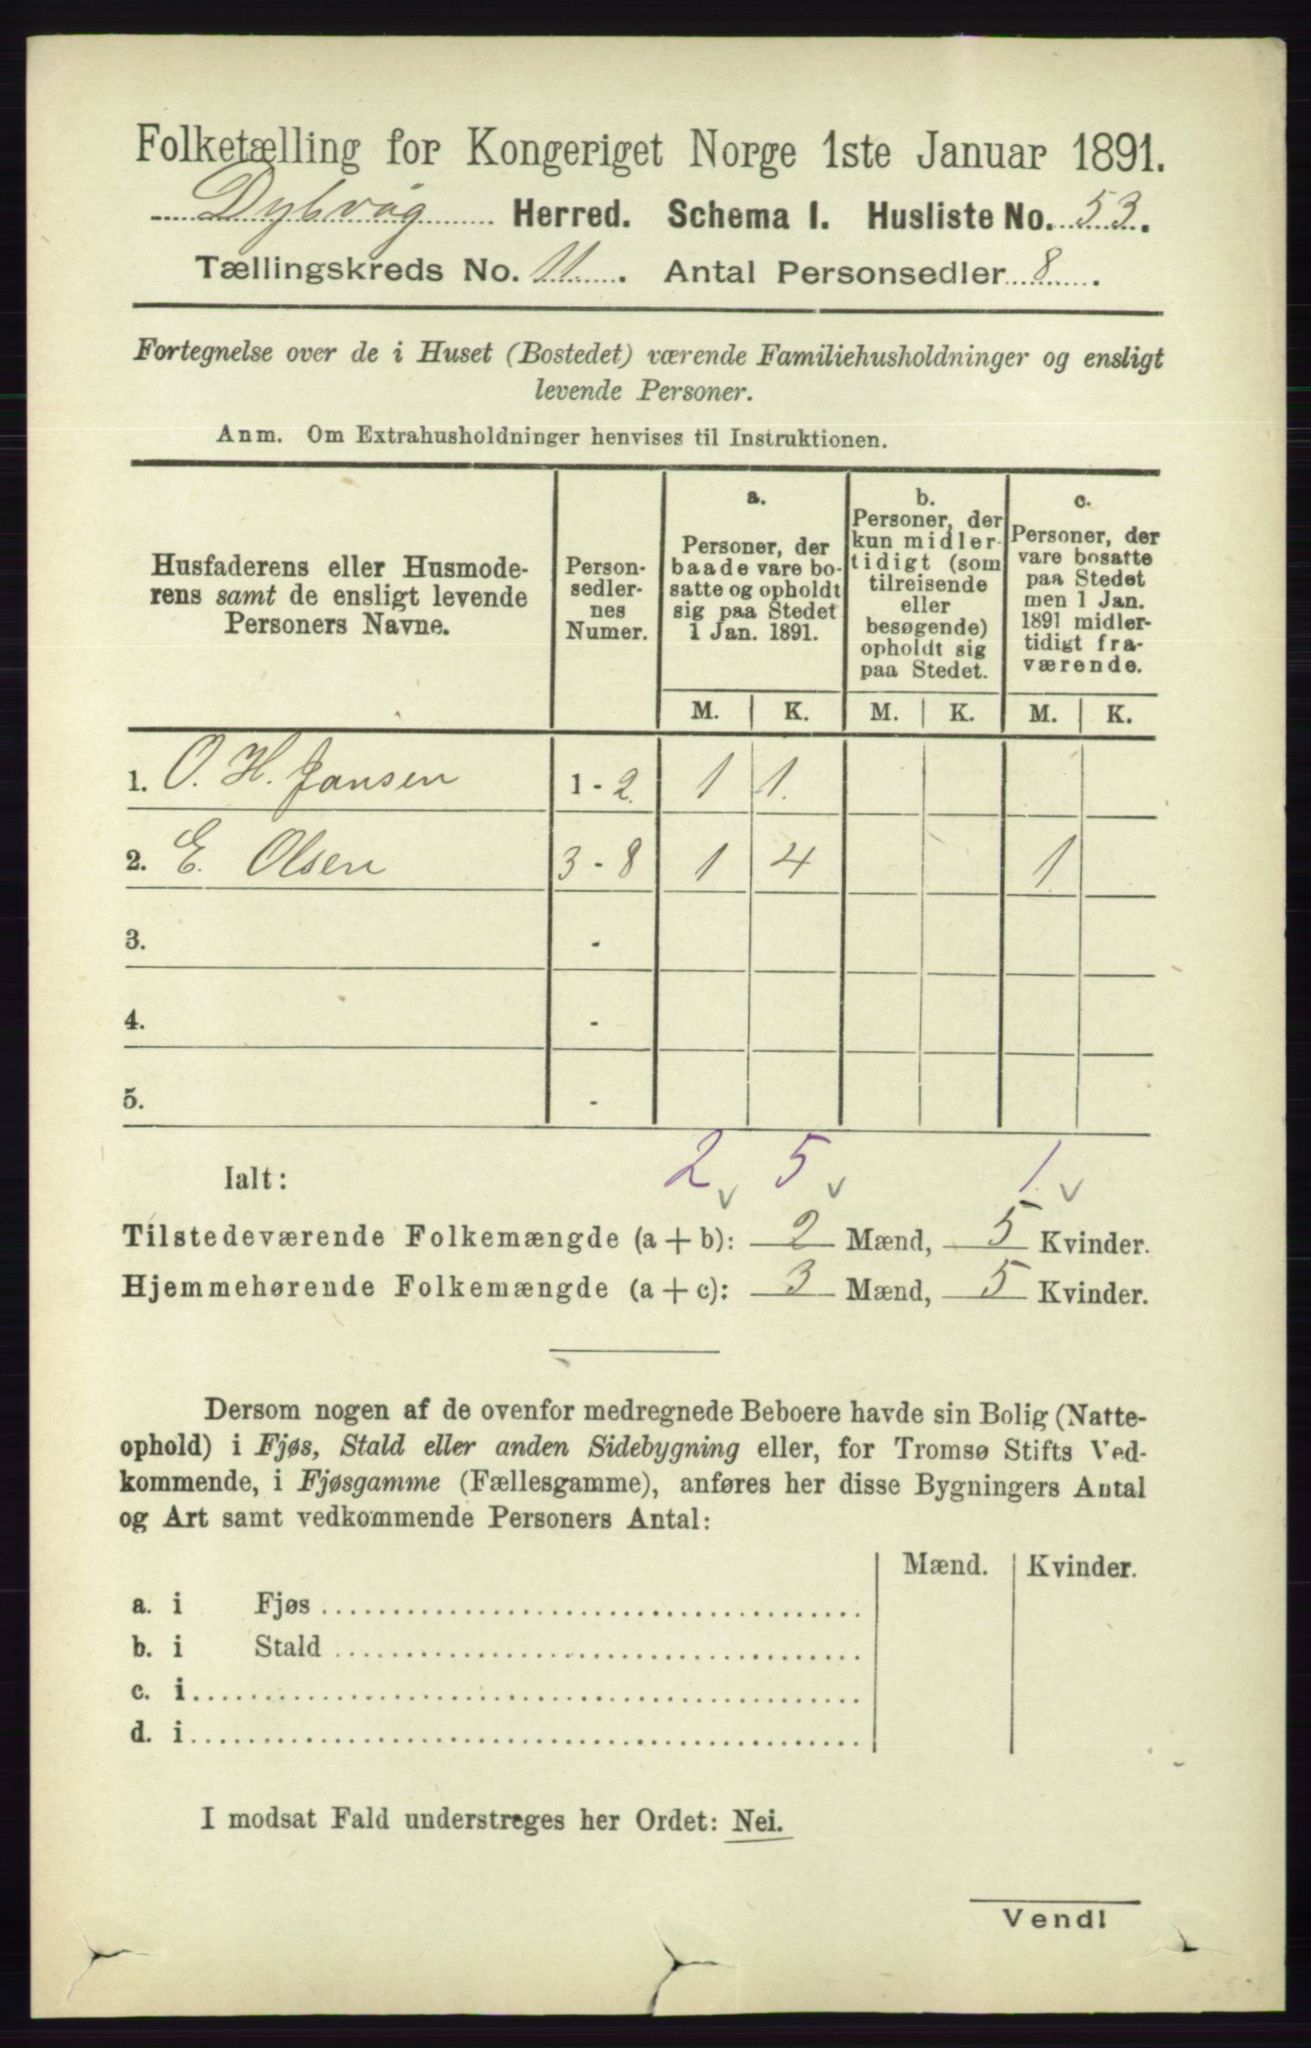 Folketælling for Kongeriget Norge 1ste Januar 1891.
Dybvåg Herred. Schema I. Husliste No. 53.
Tællingskreds No. 11. Antal Personsedler 8.
Fortegnelse over de i Huset (Bostedet) værende Familiehusholdninger og ensligt
levende Personer.
Anm. Om Extrahusholdninger henvises til Instruktionen.
Husfaderens eller Husmode-
rens samt de ensligt levende
Personers Navne.
Person-
sedler-
nes
Numer.
a.
Personer, der
baade vare bo-
satte og opholdt
sig paa Stedet
1 Jan. 1891.
b.
Personer, der
kun midler-
tidigt (som
tilreisende
eller
besøgende)
opholdt sig
paa Stedet.
c.
Personer, der
vare bosatte
paa Stedet
men 1 Jan.
1891 midler-
tidigt fra-
værende.
M. K. M. K. M. K.
1. O. H. Jansen 1 - 2 1 1.
2. E. Olsen 3 - 8 1 4 1
3. -
4. -
5. -
Ialt: 2 v 5 v 1 v
Tilstedeværende Folkemængde (a + b): 2 Mænd, 5 Kvinder.
Hjemmehørende Folkemængde (a + c): 3 Mænd, 5 Kvinder.
Dersom nogen af de ovenfor medregnede Beboere havde sin Bolig (Natte-
ophold) i Fjøs, Stald eller anden Sidebygning eller, for Tromsø Stifts Ved-
kommende, i Fjøsgamme (Fællesgamme), anføres her disse Bygningers Antal
og Art samt vedkommende Personers Antal:
Mænd. Kvinder.
a. i Fjøs
b. i Stald
c. i
d. i
I modsat Fald understreges her Ordet: Nei.
Vend!